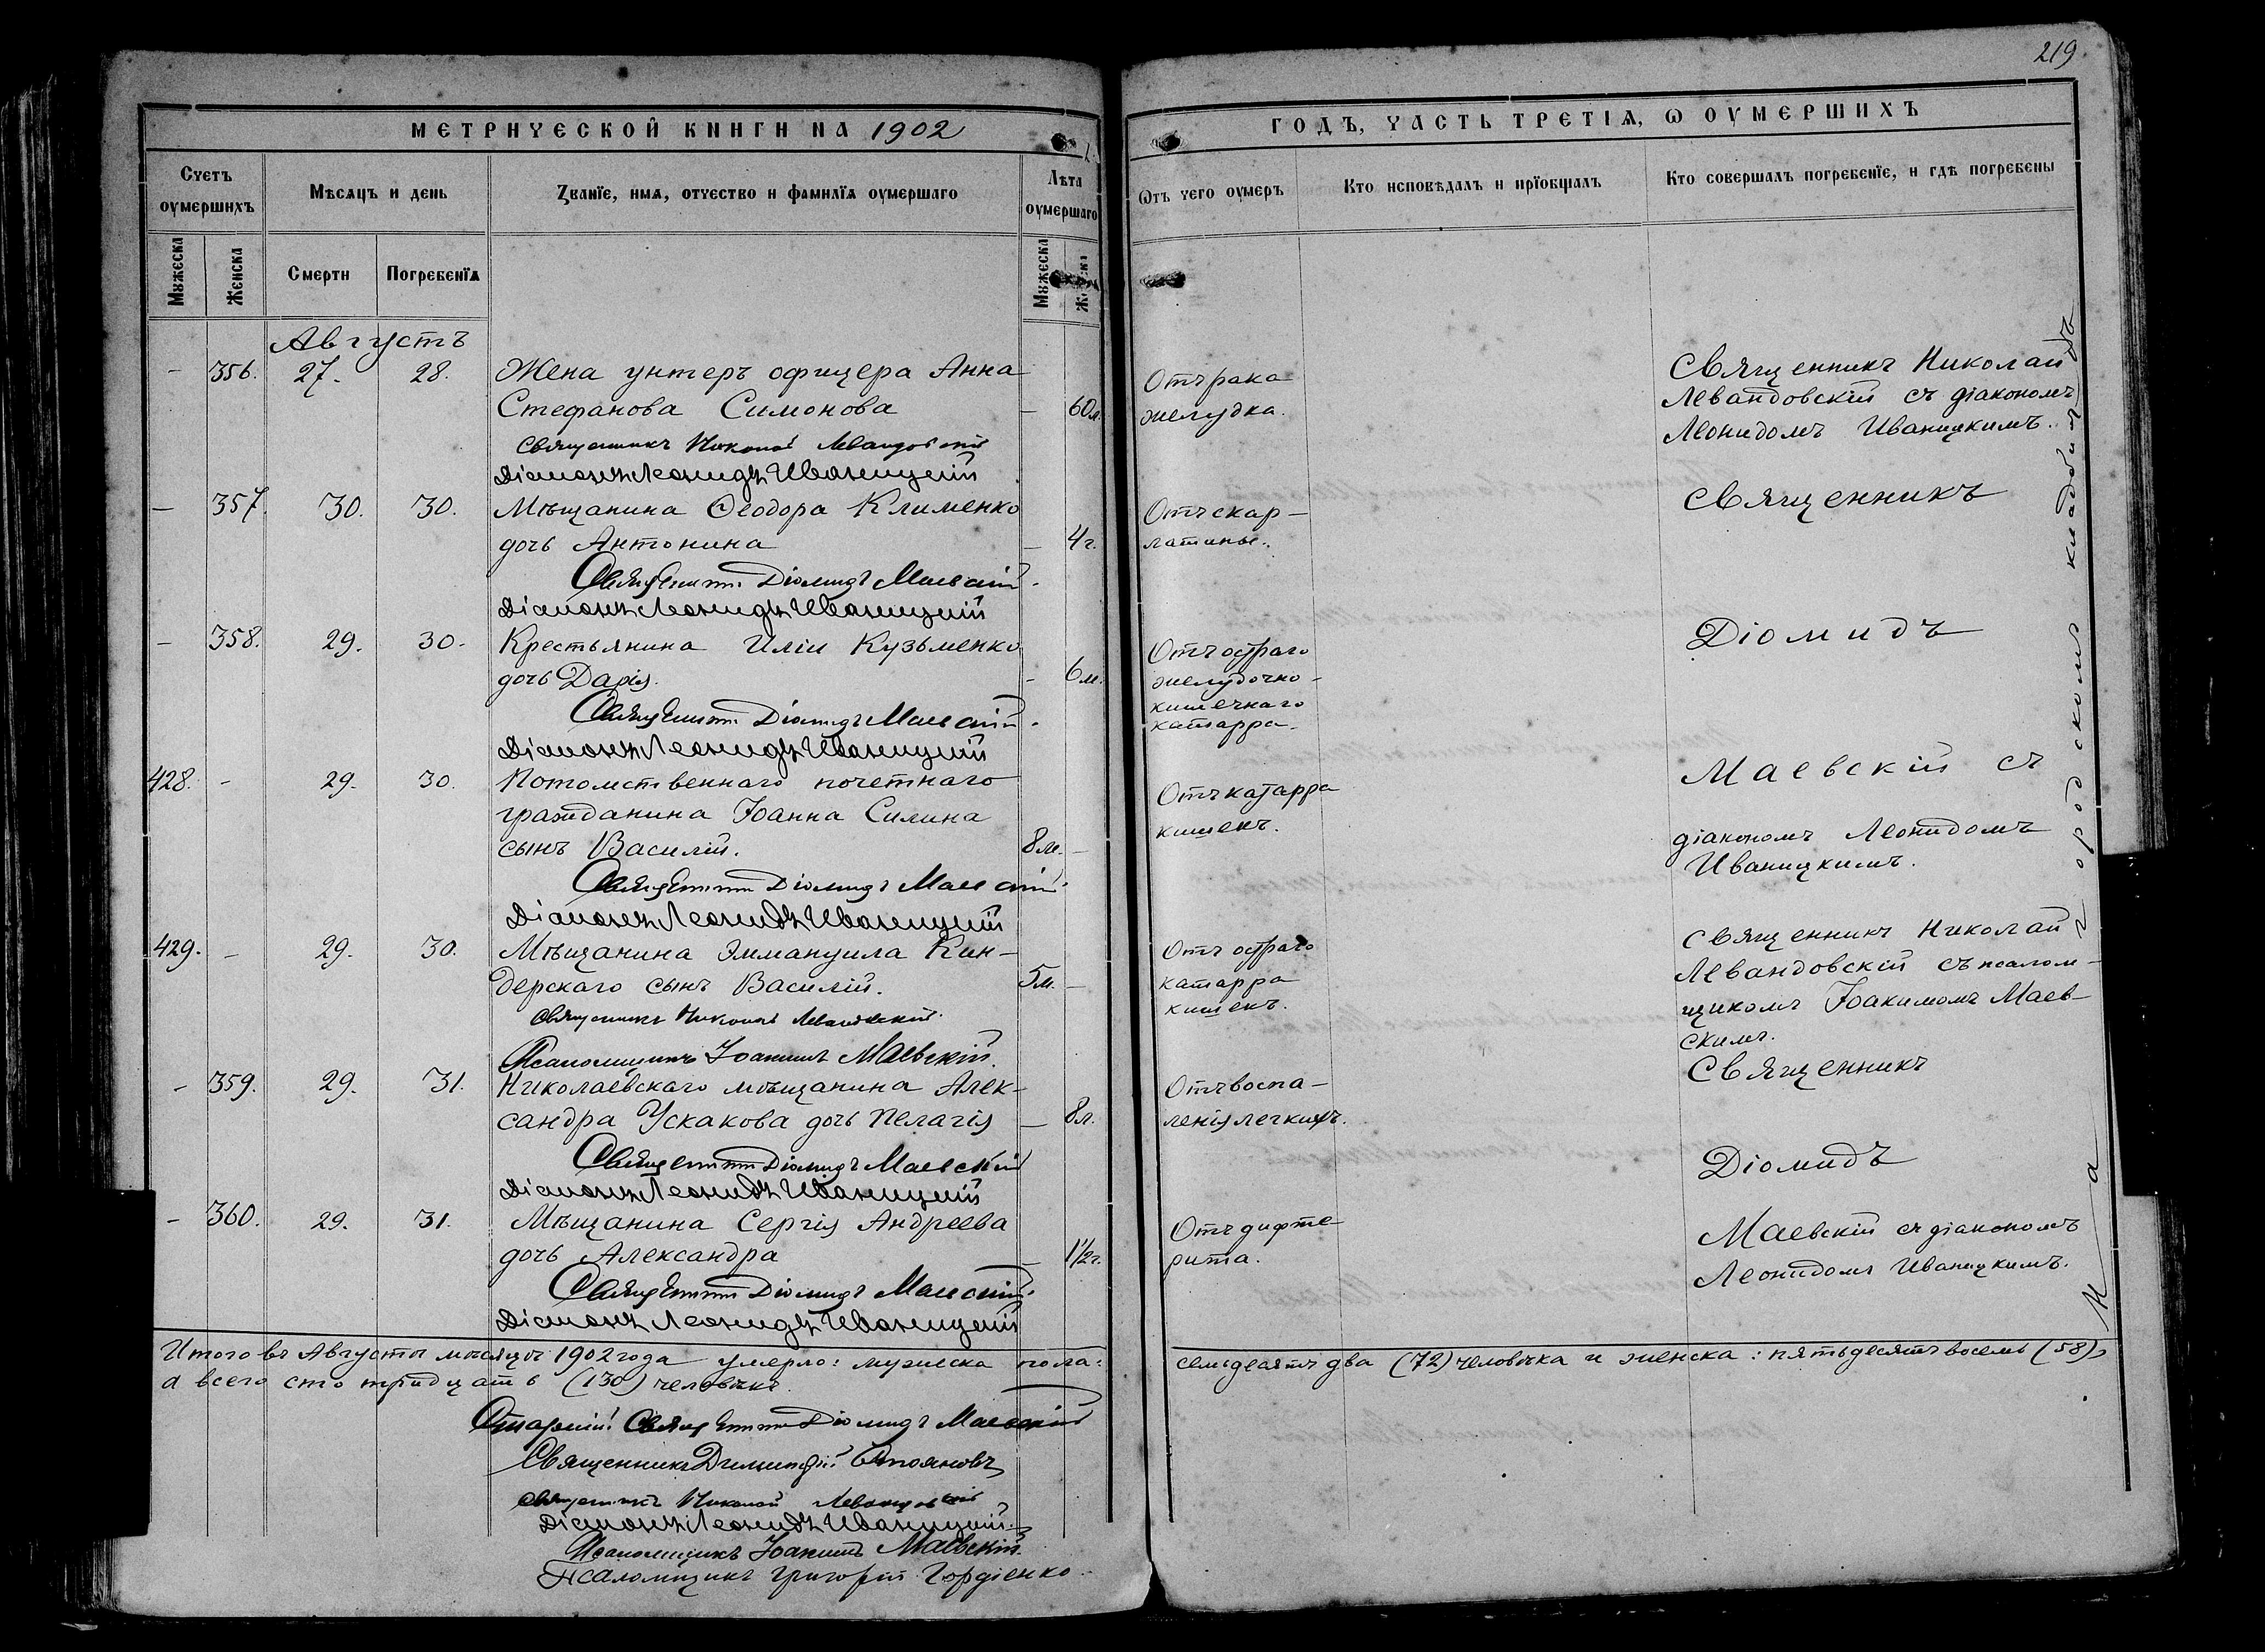 219
МЕТРИЧЕСКОЙ КНИГИ НА 1902
ГОДЪ, ЧАСТЬ ТРЕТІѦ, Ѡ ОУМЕРШИХЪ
Счетъ оумершихъ
Мѣсяцъ и день
Званїе, имѧ, отчество и фамилїѧ оумершаго
Лѣта оумершаго
Ѿтъ чего оумеръ
Кто исповѣдалъ и прїобщалъ
Кто совершалъ погребенїе, и гдѣ погребены
Мужеска
Женска
Смерти
Погребенїѧ
Мужеска
Августъ
– 356. 27. 28. Жена унтеръ офицера Анна
Стефанова Симонова – 60 л.
Отъ рака
желудка.
Священникъ Николай
Левандовскій съ діакономъ
Леонидомъ Иваницкимъ.
Священникъ Николай Левандовскій
Діаконъ Леонидъ Иваницкій
– 357. 30. 30. Мѣщанина Ѳеодора Клименко
дочь Антонина – 4 г.
Отъ скар-
латины.
Священникъ
Священникъ Діомидъ Маевскій.
Діаконъ Леонидъ Иваницкій
– 358. 29. 30. Крестьянина Иліи Кузьменко
дочь Дарія. – 6 м.
Отъ остраго
желудочно-
кишечнаго
катарра.
Діомидъ
Священникъ Діомидъ Маевскій.
Діаконъ Леонидъ Иваницкій
428. – 29. 30. Потомственнаго почетнаго
гражданина Іоанна Силина
сынъ Василій. 8 м. –
Отъ катарра
кишекъ.
Маевскій съ
діакономъ Леонидомъ
Иваницкимъ.
Священникъ Діомидъ Маевскій.
Діаконъ Леонидъ Иваницкій
429. – 29. 30. Мѣщанина Эммануила Кин-
дерскаго сынъ Василій. 5 м. –
Отъ остраго
катарра
кишекъ.
Священникъ Николай
Левандовскій съ псалом-
щикомъ Іоакимомъ Маев-
скимъ.
Священникъ Николай Левандовскій.
Псаломщикъ Іоакимъ Маевскій.
– 359. 29. 31. Николаевскаго мѣщанина Алек-
сандра Ускакова дочь Пелагія – 8 л.
Отъ воспа-
ленія легкихъ.
Священникъ
Діомидъ
Священникъ Діомидъ Маевскій
Діаконъ Леонидъ Иваницкій
– 360. 29. 31. Мѣщанина Сергія Андреева
дочь Александра – 1½ г.
Отъ дифте-
рита.
Маевскій съ діакономъ
Леонидомъ Иваницкимъ.
Священникъ Діомидъ Маевскій.
Діаконъ Леонидъ Иваницкій
На городскомъ кладбищѣ
Итого въ Августѣ мѣсяцѣ 1902 года умерло: мужеска пола: семьдесятъ два (72) человѣка и женска: пятьдесятъ восемь (58),
а всего сто тридцать (130) человѣкъ.
Старшій Священникъ Діомидъ Маевскій
Священникъ Димитрій Стояновъ
Священникъ Николай Левандовскій
Діаконъ Леонидъ Иваницкій.
Псаломщикъ Іоакимъ Маевскій.
Псаломщикъ Григорій Гордіенко.